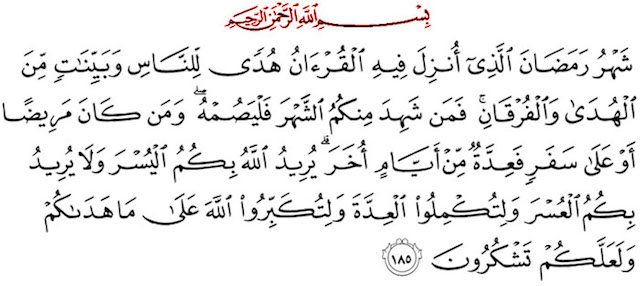 بِسْمِ ٱللَّهِ ٱلرَّحْمَٰنِ ٱلرَّحِيمِ
شَهْرُ رَمَضَانَ ٱلَّذِىٓ أُنزِلَ فِيهِ ٱلْقُرْءَانُ هُدًى لِّلنَّاسِ وَبَيِّنَٰتٍ مِّنَ
ٱلْهُدَىٰ وَٱلْفُرْقَانِ ۚ فَمَن شَهِدَ مِنكُمُ ٱلشَّهْرَ فَلْيَصُمْهُ ۖ وَمَن كَانَ مَرِيضًا
أَوْ عَلَىٰ سَفَرٍ فَعِدَّةٌ مِّنْ أَيَّامٍ أُخَرَ ۗ يُرِيدُ ٱللَّهُ بِكُمُ ٱلْيُسْرَ وَلَا يُرِيدُ
بِكُمُ ٱلْعُسْرَ وَلِتُكْمِلُوا۟ ٱلْعِدَّةَ وَلِتُكَبِّرُوا۟ ٱللَّهَ عَلَىٰ مَا هَدَىٰكُمْ
وَلَعَلَّكُمْ تَشْكُرُونَ ١٨٥